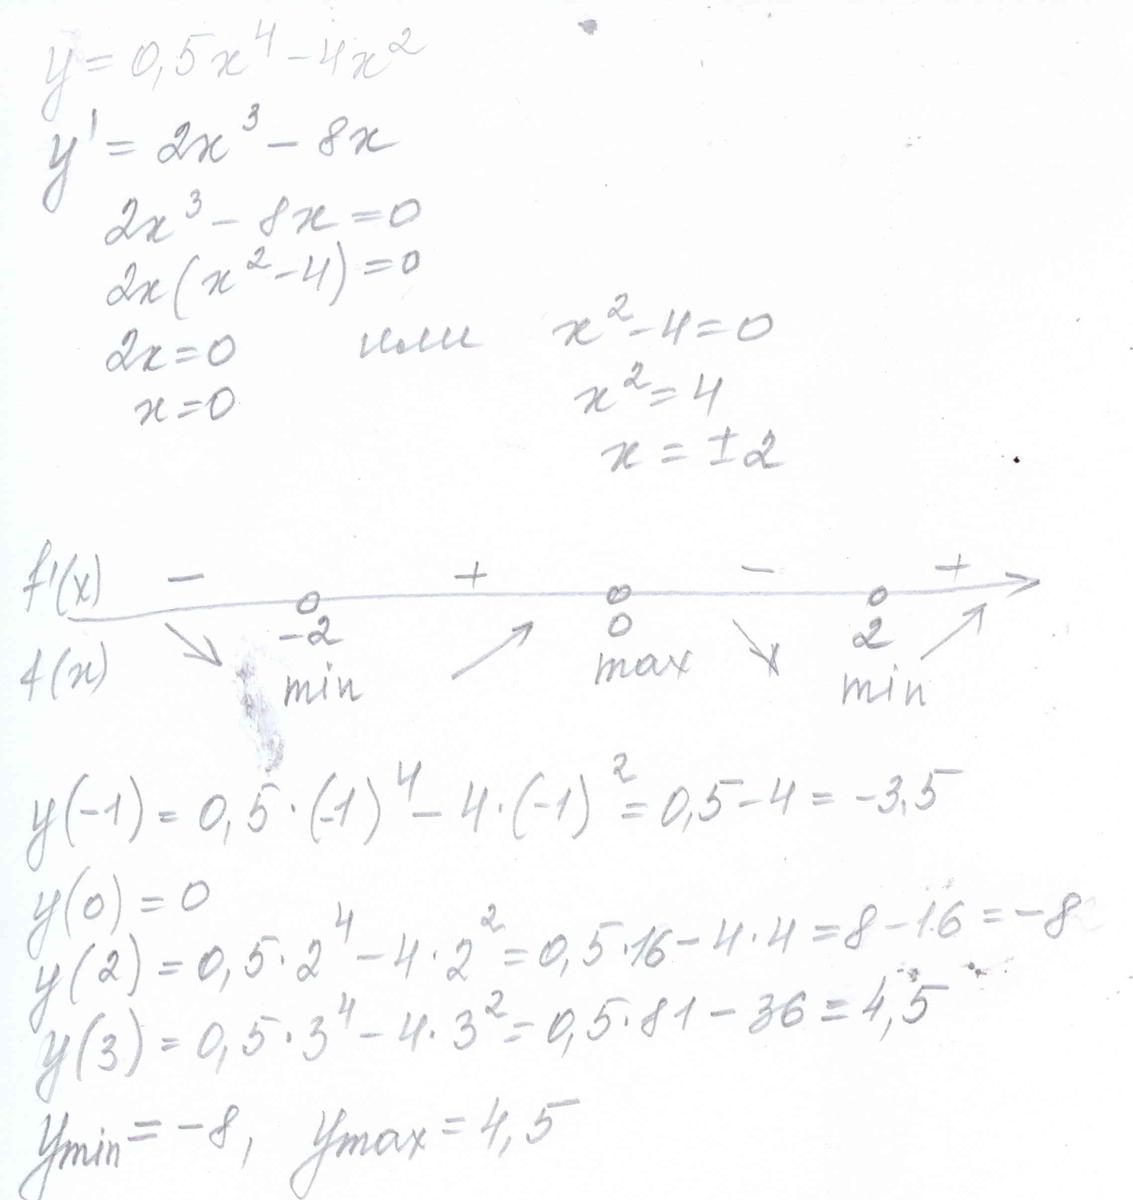 y = 0,5x⁴ - 4x²
y' = 2x³ - 8x
2x³ - 8x = 0
2x(x² - 4) = 0
2x = 0 или x² - 4 = 0
x = 0 x² = 4
x = ±2
f'(x) - + - +
-2 0 2
f(x) min max min
y(-1) = 0,5·(-1)⁴ - 4·(-1)² = 0,5 - 4 = -3,5
y(0) = 0
y(2) = 0,5·2⁴ - 4·2² = 0,5·16 - 4·4 = 8 - 16 = -8
y(3) = 0,5·3⁴ - 4·3² = 0,5·81 - 36 = 4,5
ymin = -8, ymax = 4,5